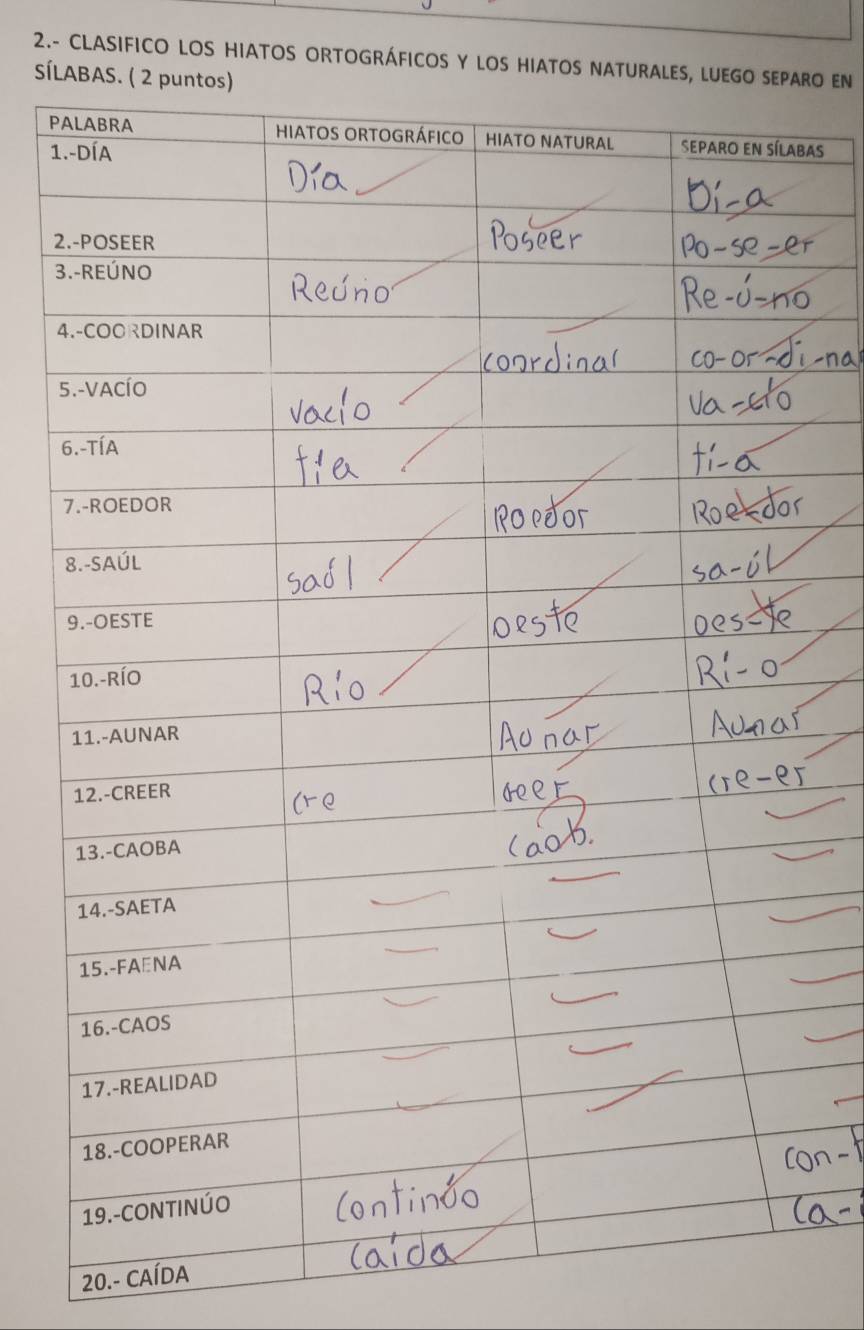 2.- CLASIFICO LOS HIATOS ORTOGRÁFICOS Y LOS HIATOS NATURALES, LUEGO SEPARO EN
SÍLABAS. ( 2 puntos)
PALABRA HIATOS ORTOGRÁFICO HIATO NATURAL SEPARO EN SÍLABAS
1.-DÍA Día Dí-a
2.-POSEER Poseer Po-se-er
3.-REÚNO Reúno Re-ú-no
4.-COORDINAR coordinar co-or-di-na
5.-VACÍO vacío va-cío
6.-TÍA tía tí-a
7.-ROEDOR Roedor Roe-dor
8.-SAÚL saúl sa-úl
9.-OESTE oeste oes-te
10.-RÍO Río Rí-o
11.-AUNAR Aunar Au-nar
12.-CREER cre reer cre-er
13.-CAOBA caob.
14.-SAETA
15.-FAENA
16.-CAOS
17.-REALIDAD
18.-COOPERAR
19.-CONTINÚO Continúo con-t
20.- CAÍDA Caída Ca-í